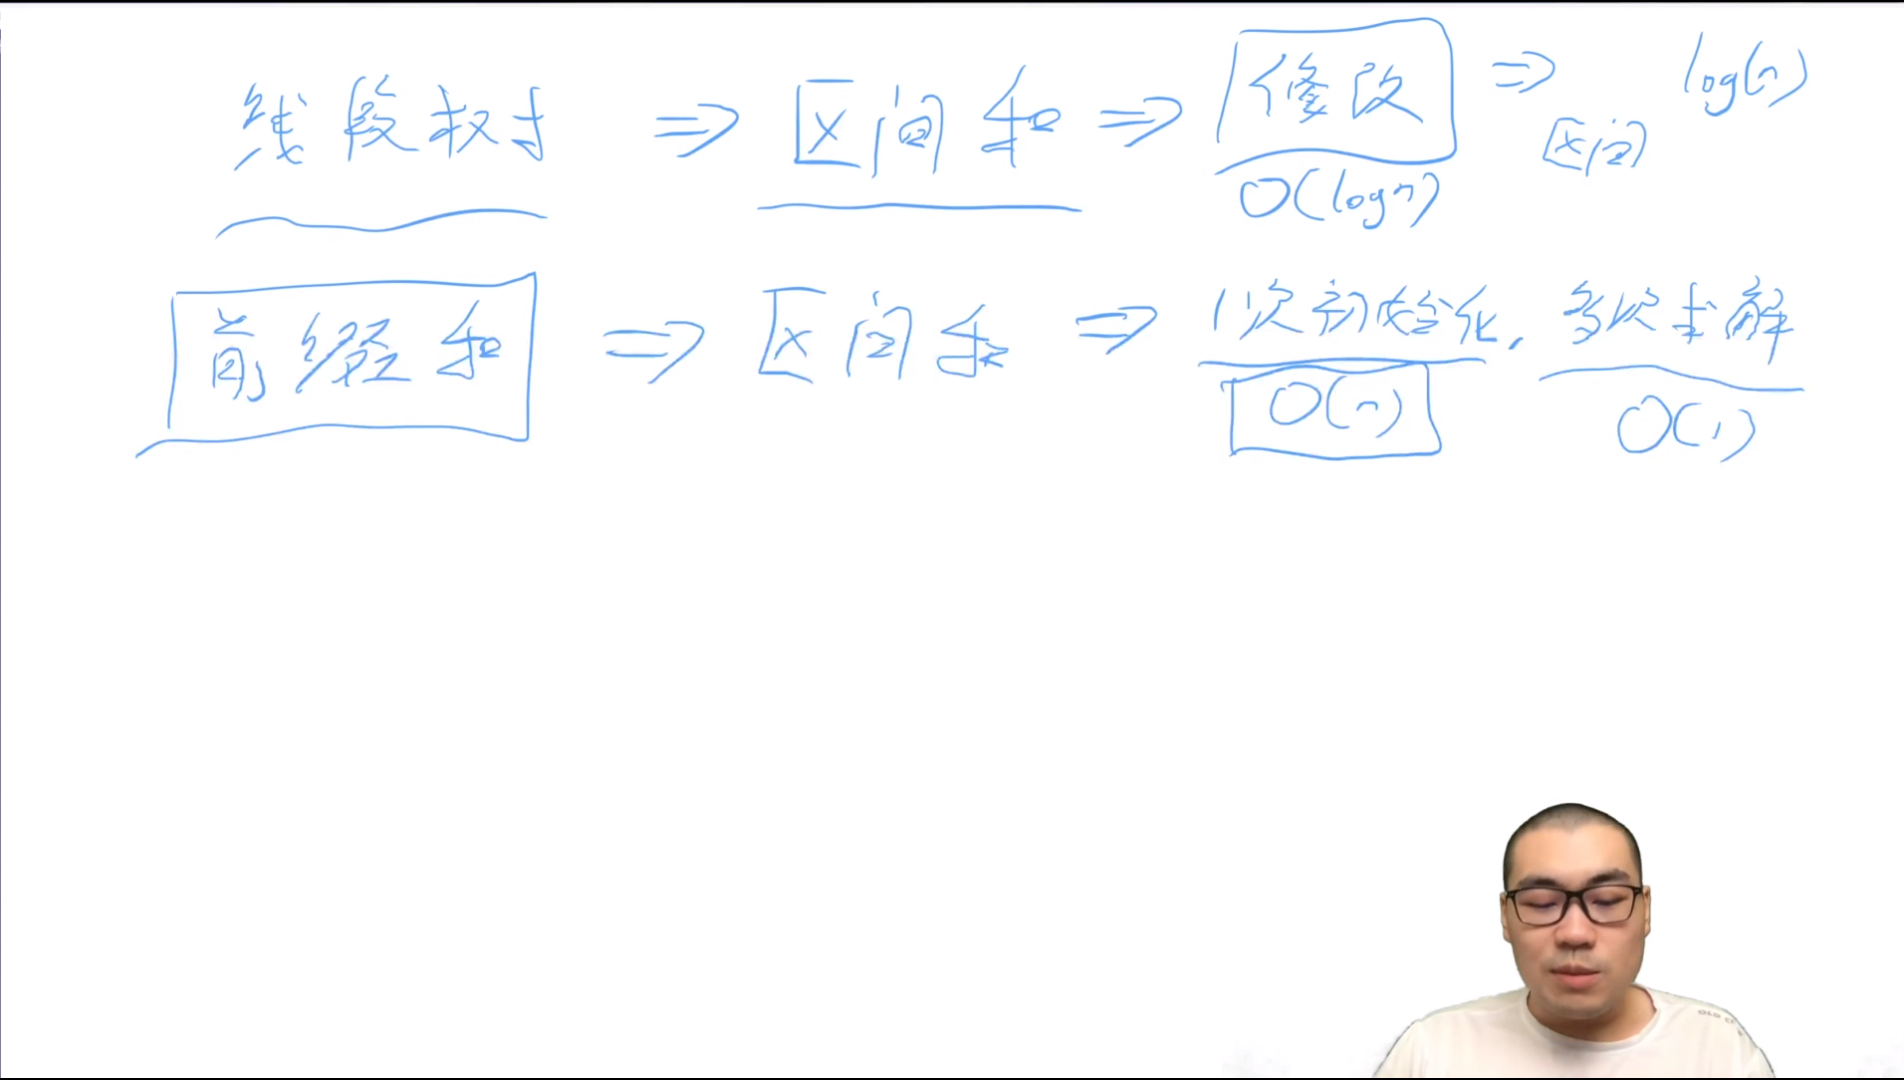 线段树 ⇒ 区间和 ⇒ 修改 ⇒ log(n)
O(logn) 区间
前缀和 ⇒ 区间和 ⇒ 1次初始化, 多次求解
O(n) O(1)
OLD